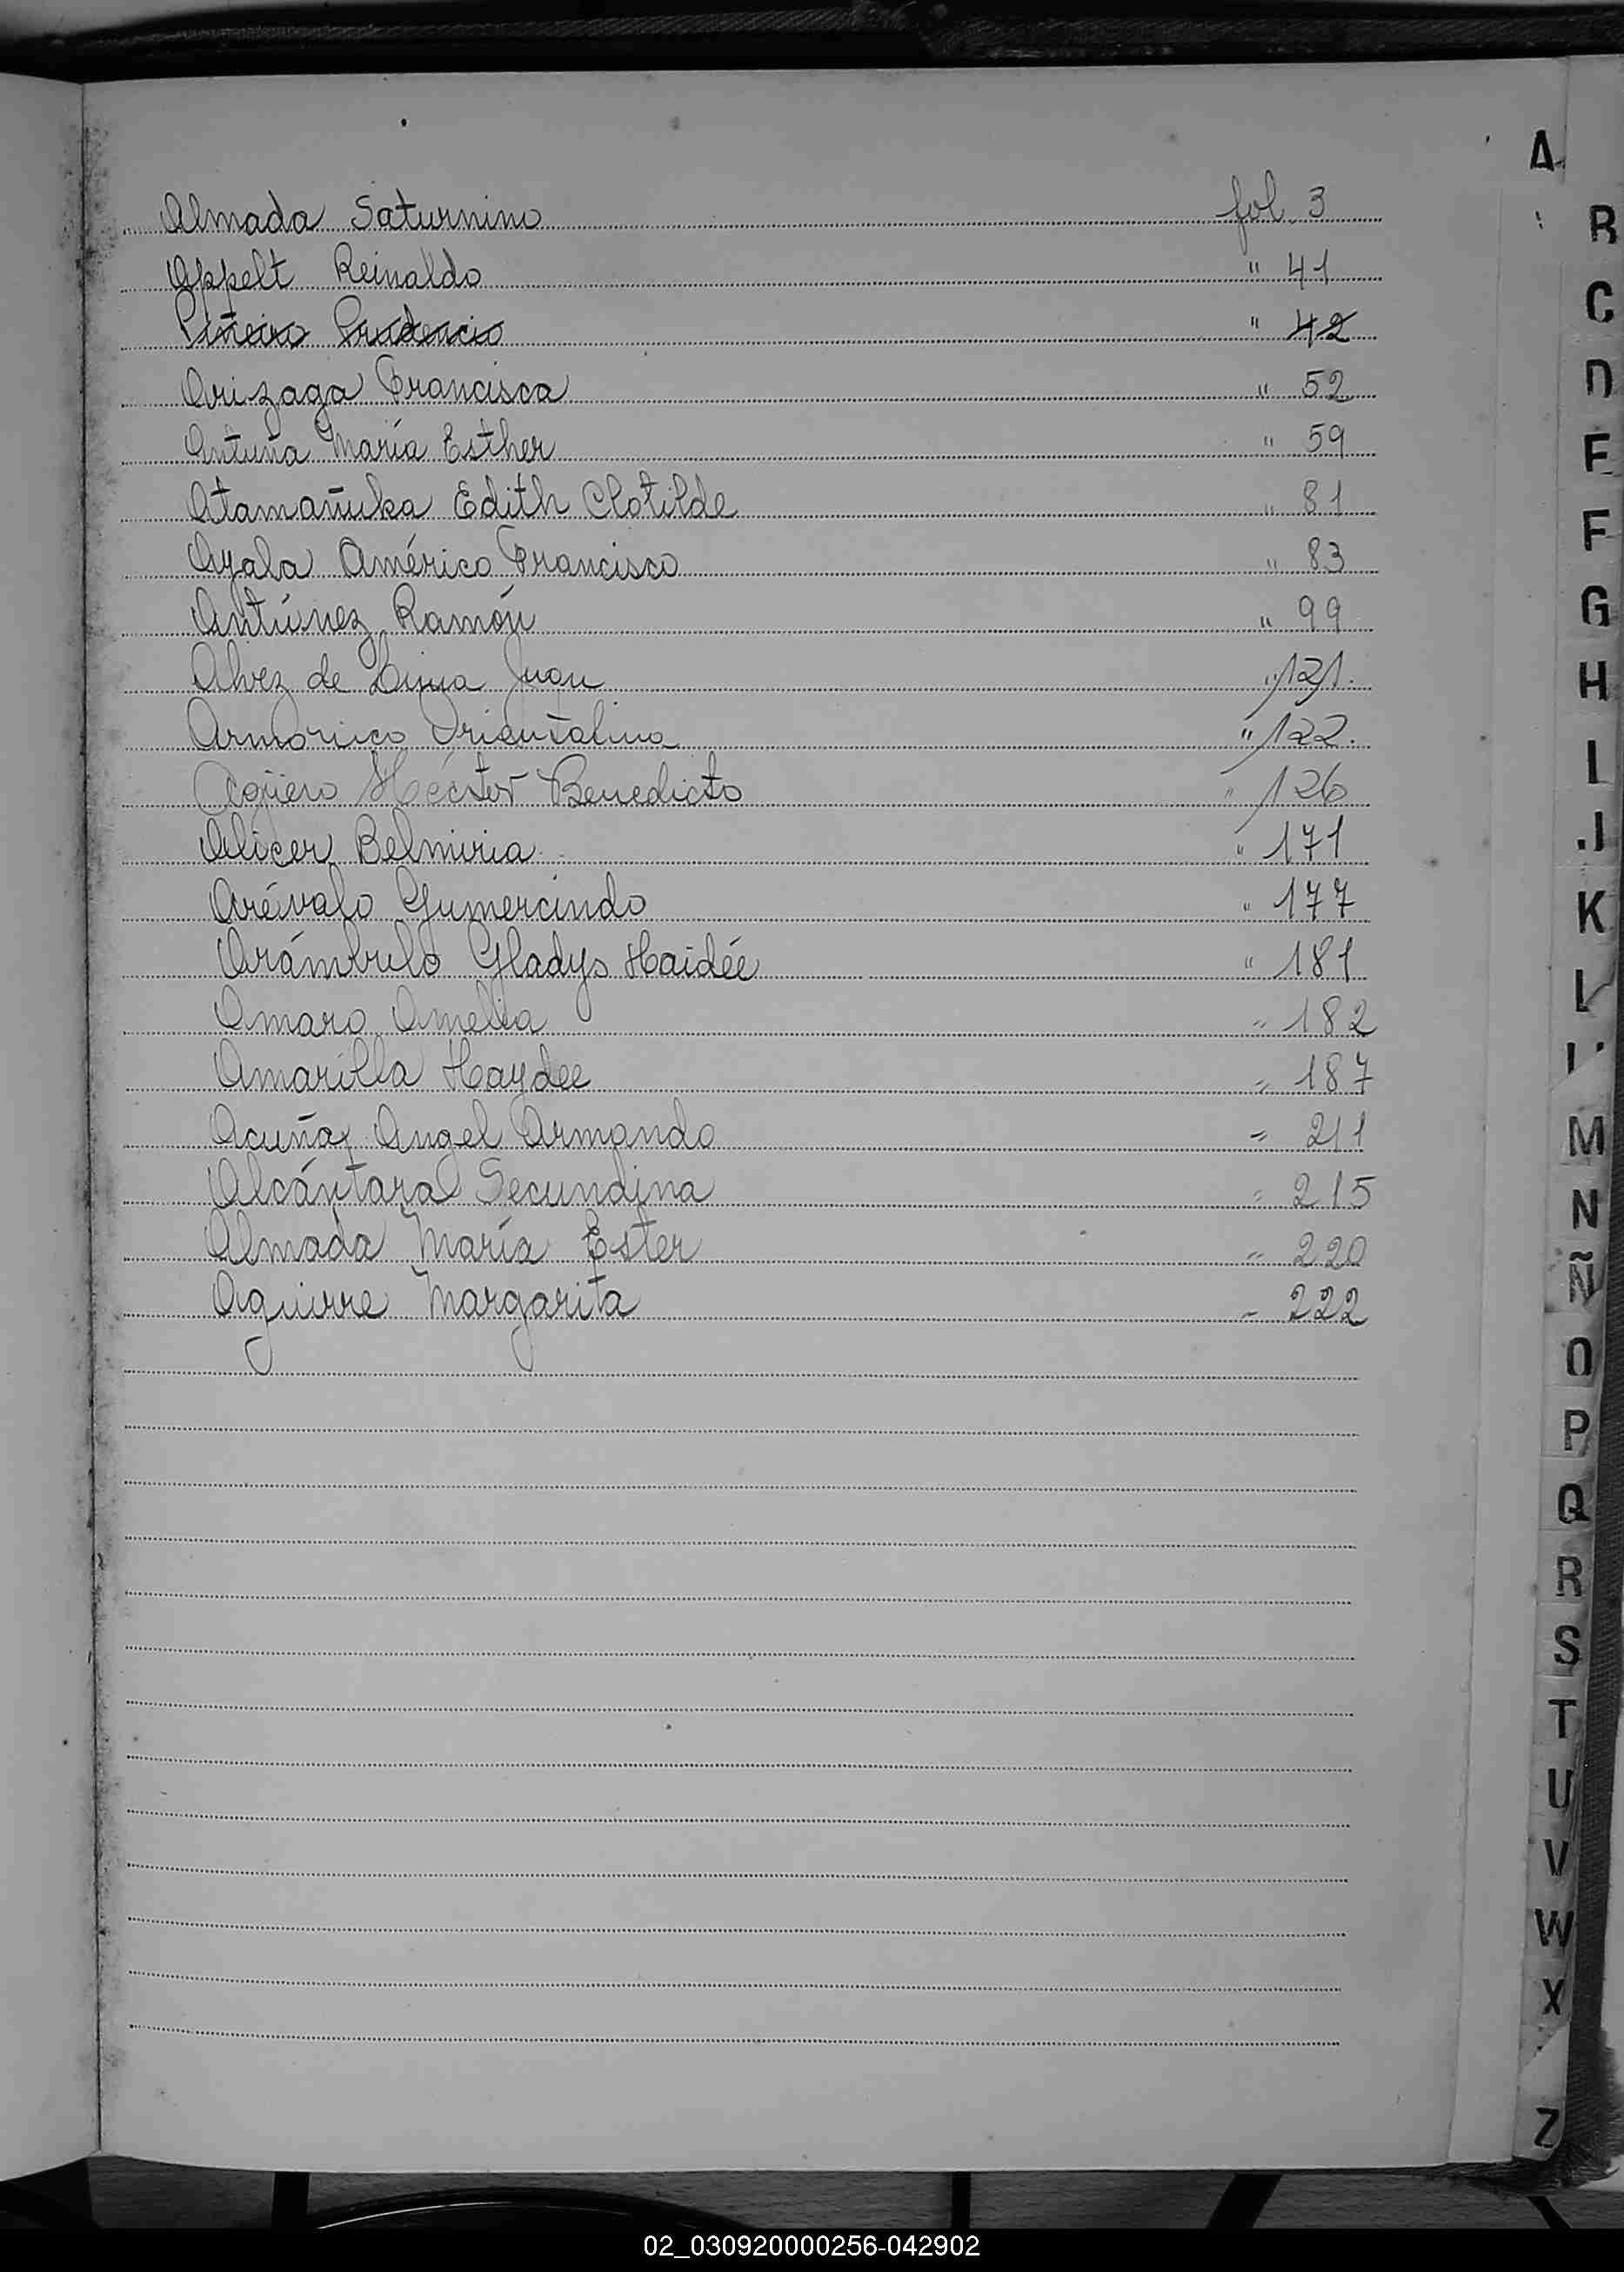 A
Almada Saturnino fol. 3
Appelt Reinaldo " 41
Piñeiro Prudencio " 42
Arizaga Francisca " 52
Antuña María Esther " 59
Atamañuka Edith Clotilde " 81
Ayala Américo Francisco " 83
Antúnez Ramón " 99
Alvez de Lima Juan " 121.
Armorico Orientalina " 122.
Agüero Héctor Benedicto " 126
Alicer Belmiria " 171
Arévalo Gumercindo " 177
Arámbulo Gladys Haidée " 181
Amaro Amelia " 182
Amarilla Haydee " 187
Acuña Angel Armando " 211
Alcántara Secundina " 215
Almada María Ester " 220
Aguirre Margarita " 222
B
C
D
E
F
G
H
I
J
K
L
M
N
Ñ
O
P
Q
R
S
T
U
V
W
X
Z
02_030920000256-042902